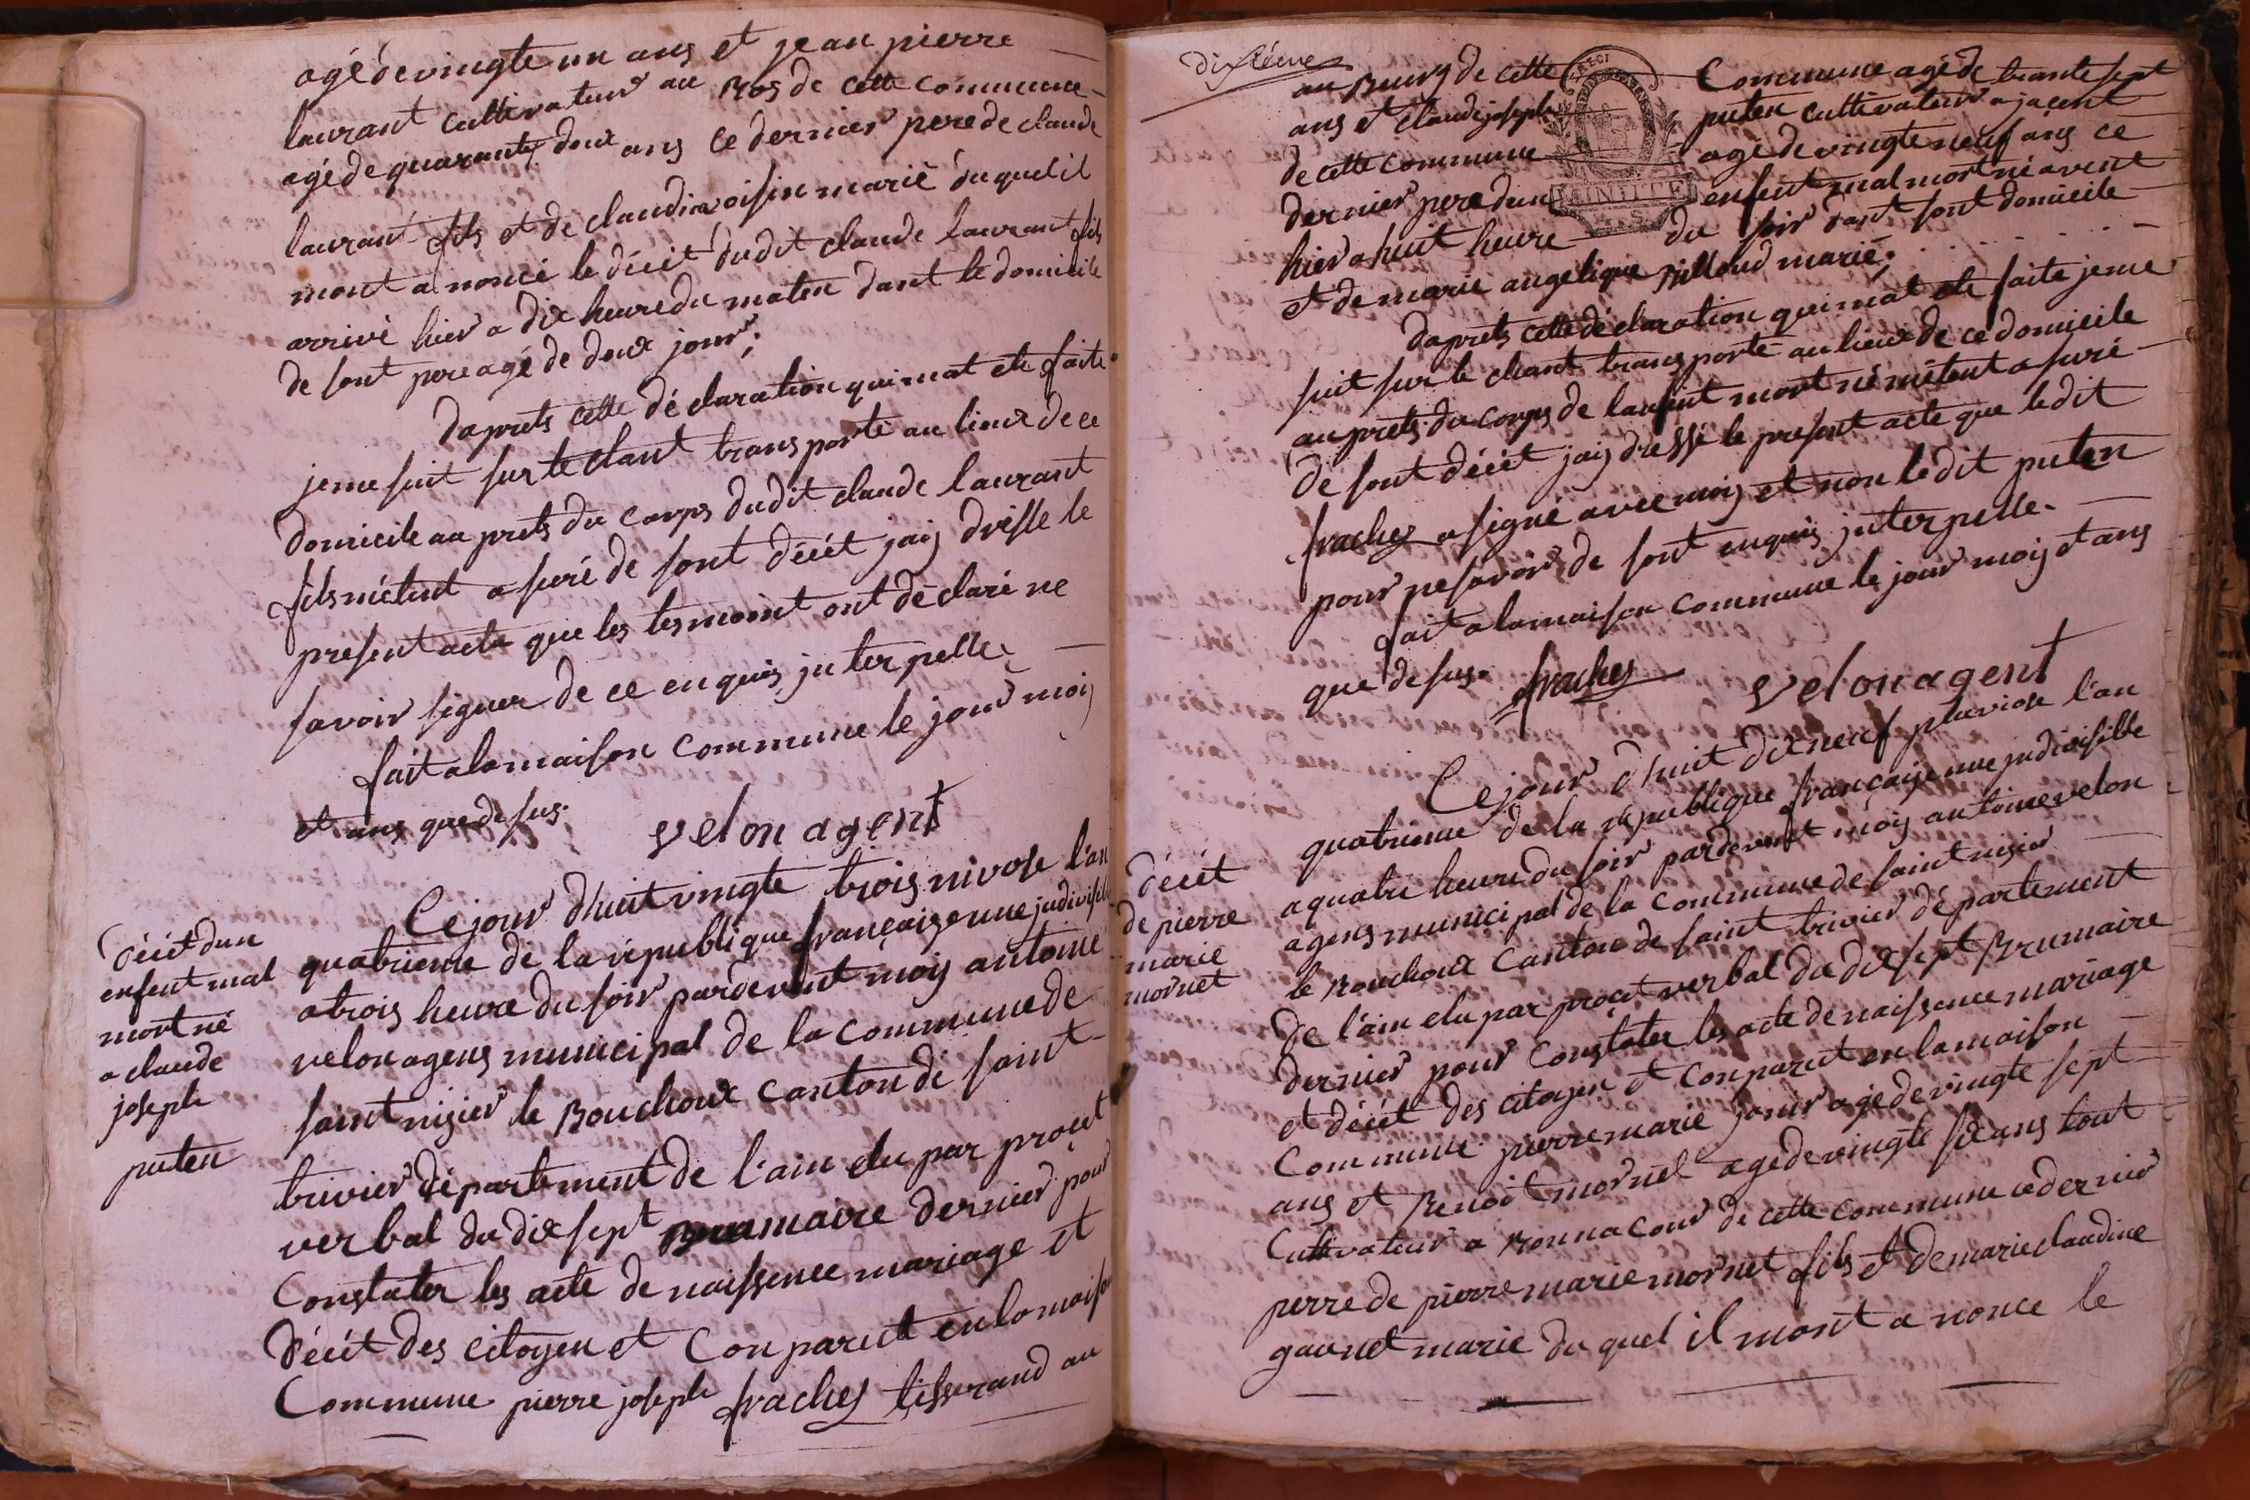 agé de vingte un ans et jean pierre
laurant cultivateur au Bos de cette commune
agé de quarante deux ans ce dernier pere de claude
laurant fils et de claudine voisin marié duquel il
mont a noncé le décét dudit claude laurant fils
arrivé hier a dix heure du maten dant le domicile
de sont pere agé de deux jour.
daprets cette déclaration qui mat eté faite
je me suit sur le chant transporté au lieux de ce
domicile au prets du corps dudit claude laurant
fils métent asuré de sont décét jaij dressé le
present acte que les tesmoint ont déclaré ne
savoir signer de ce enquis interpellé
fait a la maison commune le jour mois
et ans que desus.
velon agent
décét dun
enfent mal
mort né
a claude
joseph
puten
Ce jour dhuit vingte trois nivose l'an
quatrieme de la république française une indivisible
a trois heure du soir pardevent moij antoine
velon agens municipal de la commune de
saint nizier le Bouchoux canton de saint
trivier département de l'ain elu par procet
verbal du dix sept Brumaire dernier pour
Constater les acte de naissence mariage et
décét des citoyen et Conparut en la maison
Commune pierre joseph frachey tisserand au
dixiéme
au Bourg de cette Commune agé de trante sept
ans et claude joseph puten cultivateur a jacent
de cette commune agé de vingte neuf ans ce
dernier pere dun enfent mal mort né avent
hier a huit heure du soir dant sont domicile
et de marie angelique Billoud marié.
daprets cette déclaration qui mat eté faite je me
suit sur le chant transporté au lieux de ce domicile
au prets du corps de lanfent mort né métent asuré
de sont décét jaij dressé le present acte que ledit
frachey a signé avec moij et non le dit puten
pour ne savoir de sont enquis interpellé.
fait a la maison commune le jour mois et ans
que desus. frachey
velon agent
décét
de pierre
marie
mornet
Ce jour dhuit dix neuf pluviose l'an
quatrieme de la république française une indivisible
a quatre heure du soir pardevent moij antoine velon
agens municipal de la commune de saint nizier
le Bouchoux canton de saint trivier département
de l'ain elu par procet verbal du dix sept Brumaire
dernier pour Constater les acte de naissence mariage
et décét des citoyen et Conparut en la maison
Commune pierre marie agé de vingte sept
ans et Benoit mornet agé de vingte six ans tout
Cultivateur a Bonnacour de cette commune ce dernier
perre de pierre marie mornet fils et de marie claudine
marie du quel il mont a noncé le